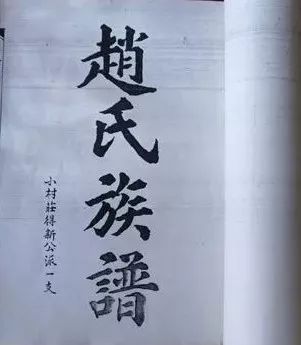 趙氏族譜
小村莊得新公派一支